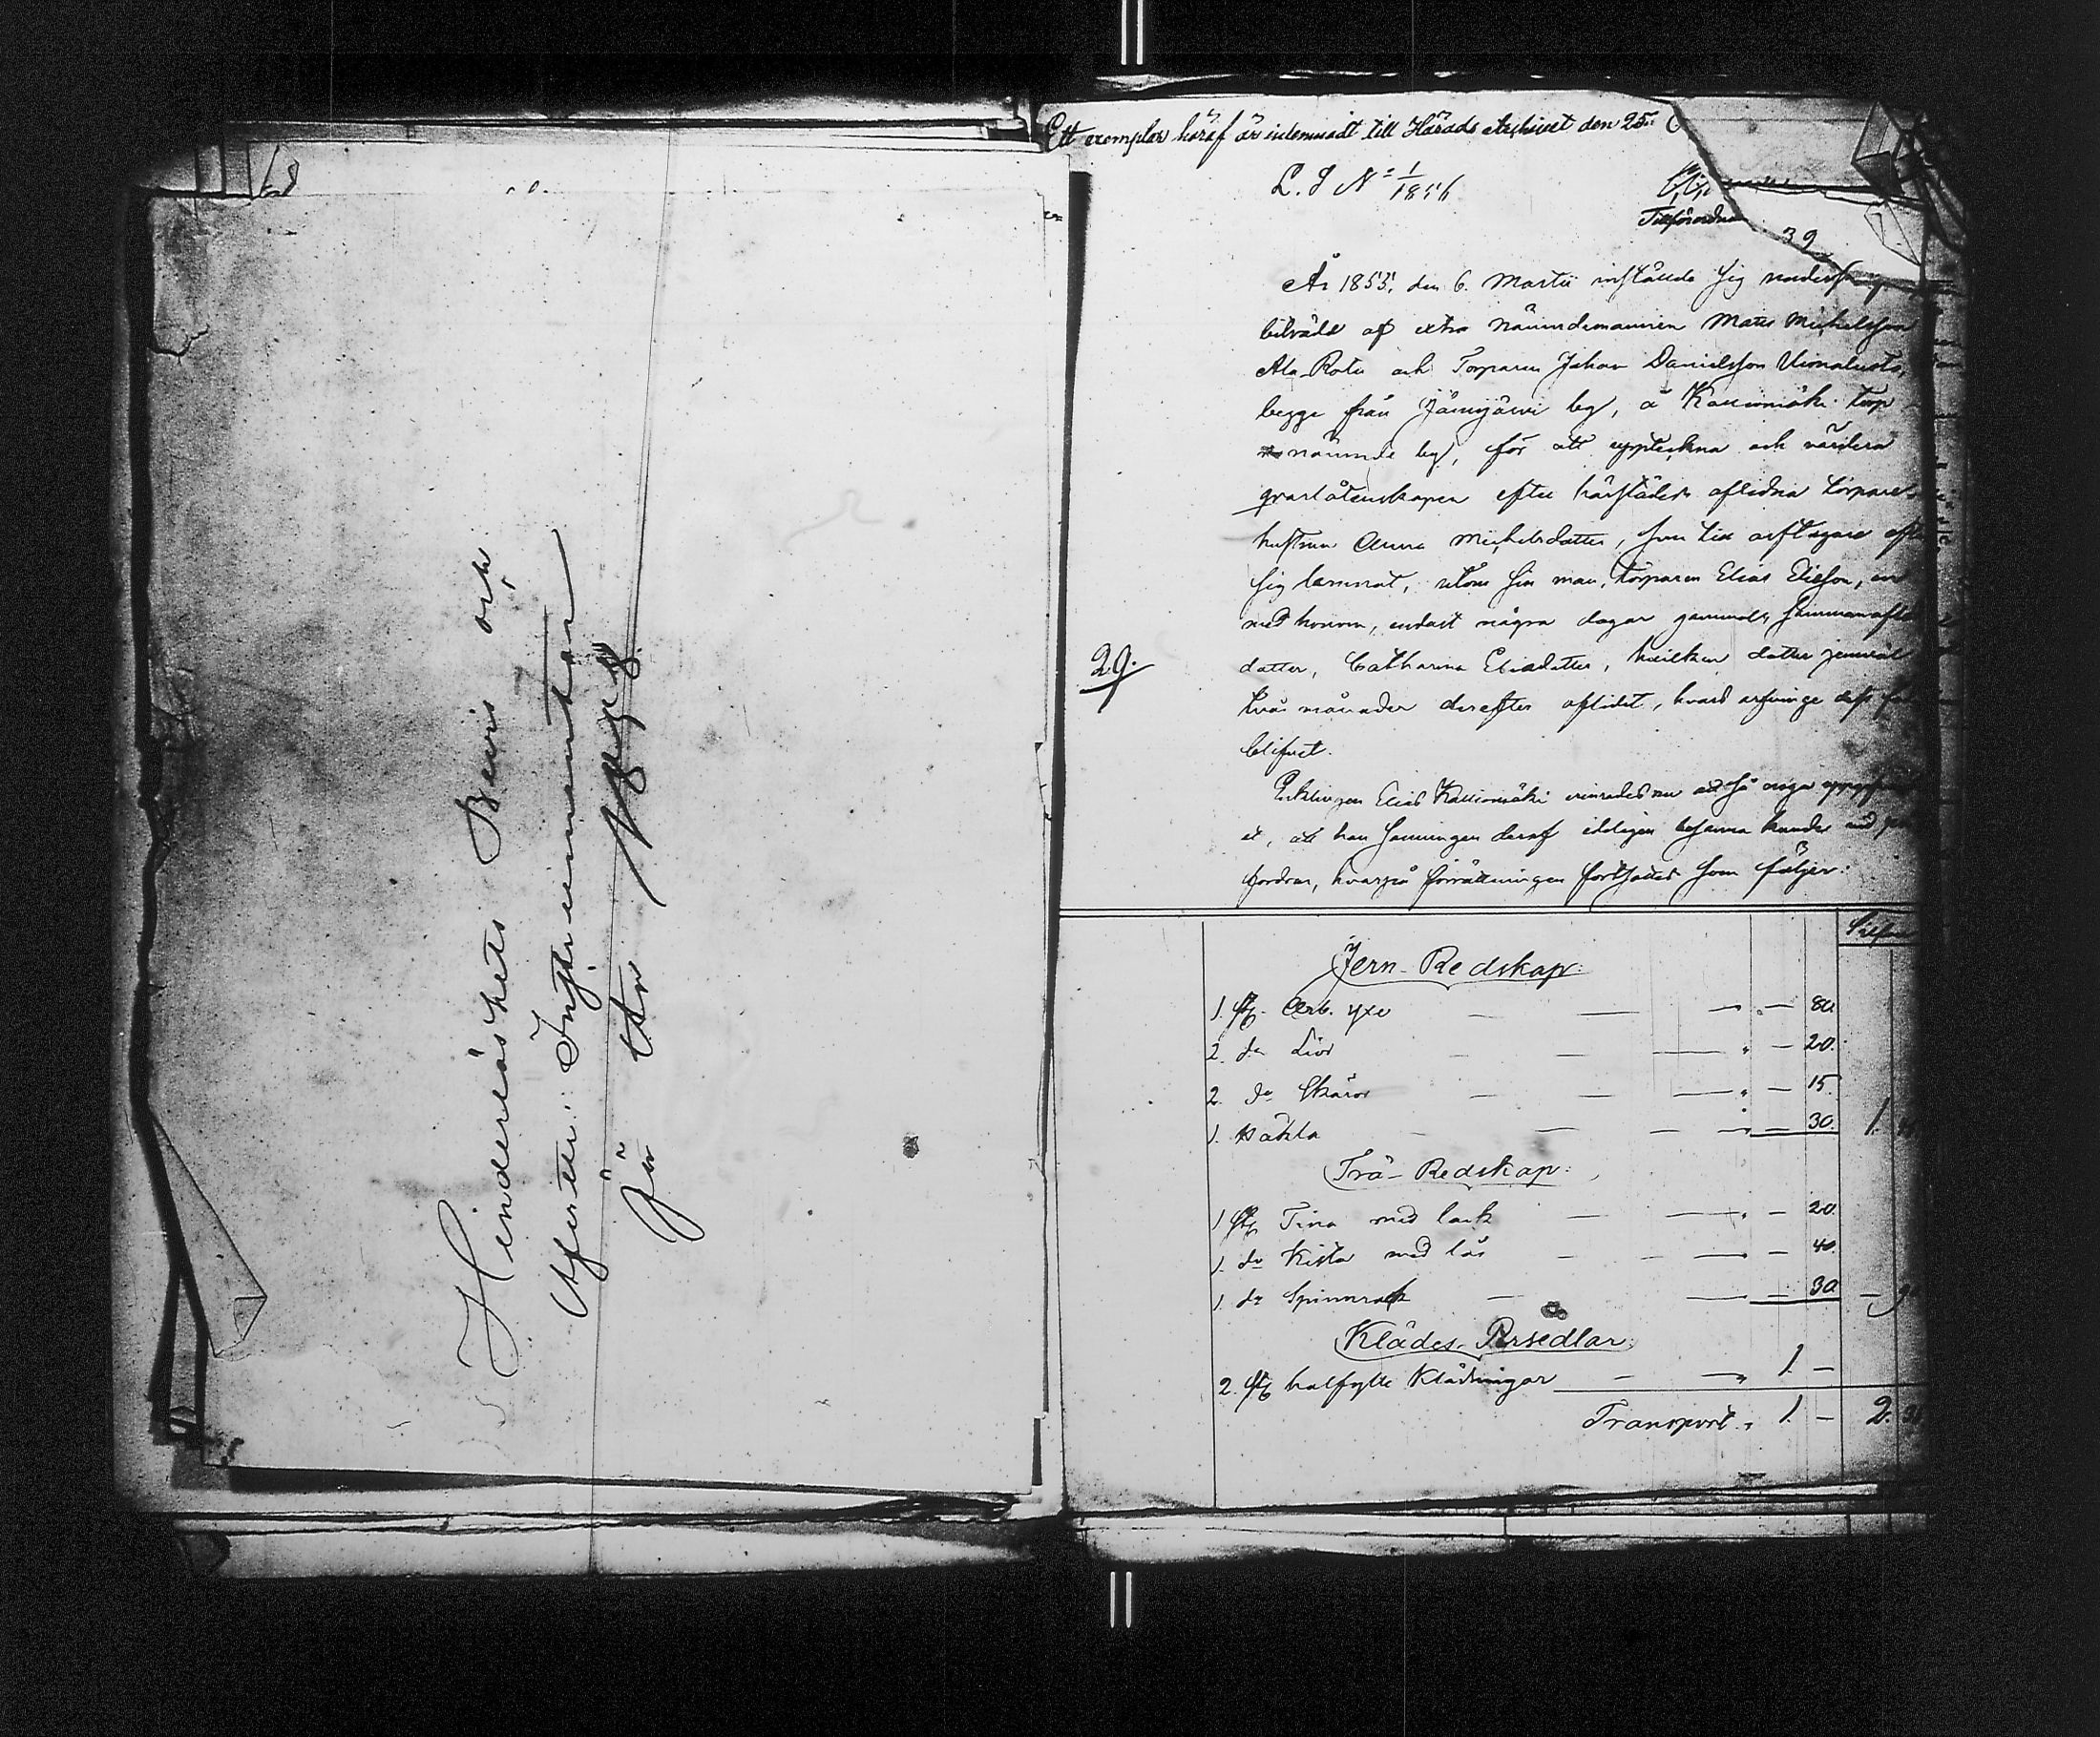 68
Hinderslöshets Bevis och
Afvittr: Instrumenter
för År 1858.
Ett exemplar häraf är inlemnadt till Härads Archivet den 25
L. S N= 1/1856
Tillförordnad
39
År 1855, den 6. Martii inställde sig
biträdd af extra Nämndemannen Mats Michelsson
Ala-Rotu och Torparen Johan Danielsson
begge från Jämijärvi by, å Kallionmäki torp
nämnde by, för att uppteckna och värdera
qvarlåtenskapen efter härstädes aflidna torpare
hustrun Anna Michelsdotter, som till arftagare efter
sig lemnat, utom sin man, torparen Elias Eliesson, en
med honom, endast några dagar gammal, sammanaflad
dotter, Catharina Eliadotter, hvilken dotter jemväl
två månader derefter aflidit, hvars arfvinge
blifvit.
29.
Enklingen Elias Kallionmäki erinrades nu att så noga
et, att han sanningen deraf edeligen besanna kunde
fordras, hvarpå förrättningen fortsattes som följer:
Silfver
Jern-Redskap:
1. st. Arb. yxe — 80.
2. do Liar — 20.
2. do Skäror — 15.
1. Häkla — 30. 1.
Trä-Redskap:
1 st Tina med lock — 20.
1. do Kista med lås — 40.
1. do Spinnrock — 30. —
Klädes-Persedlar:
2. st halfylle Klädningar — 1. —
Transport. 1. — 2.